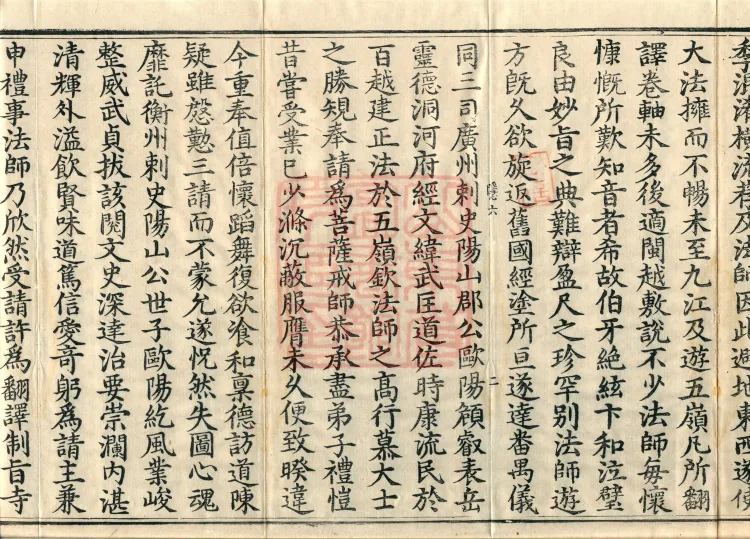 季混淆橫流荐及法師因此避地東西遂使
大法擁而不暢未至九江及遊五嶺凡所翻
譯卷軸未多後適閩越敷說不少法師每懷
慷慨所歎知音者希故伯牙絶絃卞和泣璧
良由妙旨之典難辯盈尺之珍罕别法師遊
方旣久欲旋返舊國經塗所亘遂達番禺儀
隱六 二
同三司廣州刺史陽山郡公歐陽頠睿表岳
靈德洞河府經文緯武匡道佐時康流民於
百越建正法於五嶺欽法師之高行慕大士
之勝規奉請爲菩薩戒師恭承盡弟子禮愷
昔嘗受業已少滌沉蔽服膺未久便致暌違
今重奉值倍懷蹈舞復欲飡和稟德訪道陳
疑雖慇懃三請而不蒙允遂怳然失圖心魂
靡託衡州刺史陽山公世子歐陽紇風業峻
整威武貞拔該閱文史深達治要崇瀾內湛
清輝外溢飲賢味道篤信愛奇躬爲請主兼
申禮事法師乃欣然受請許爲翻譯制旨寺